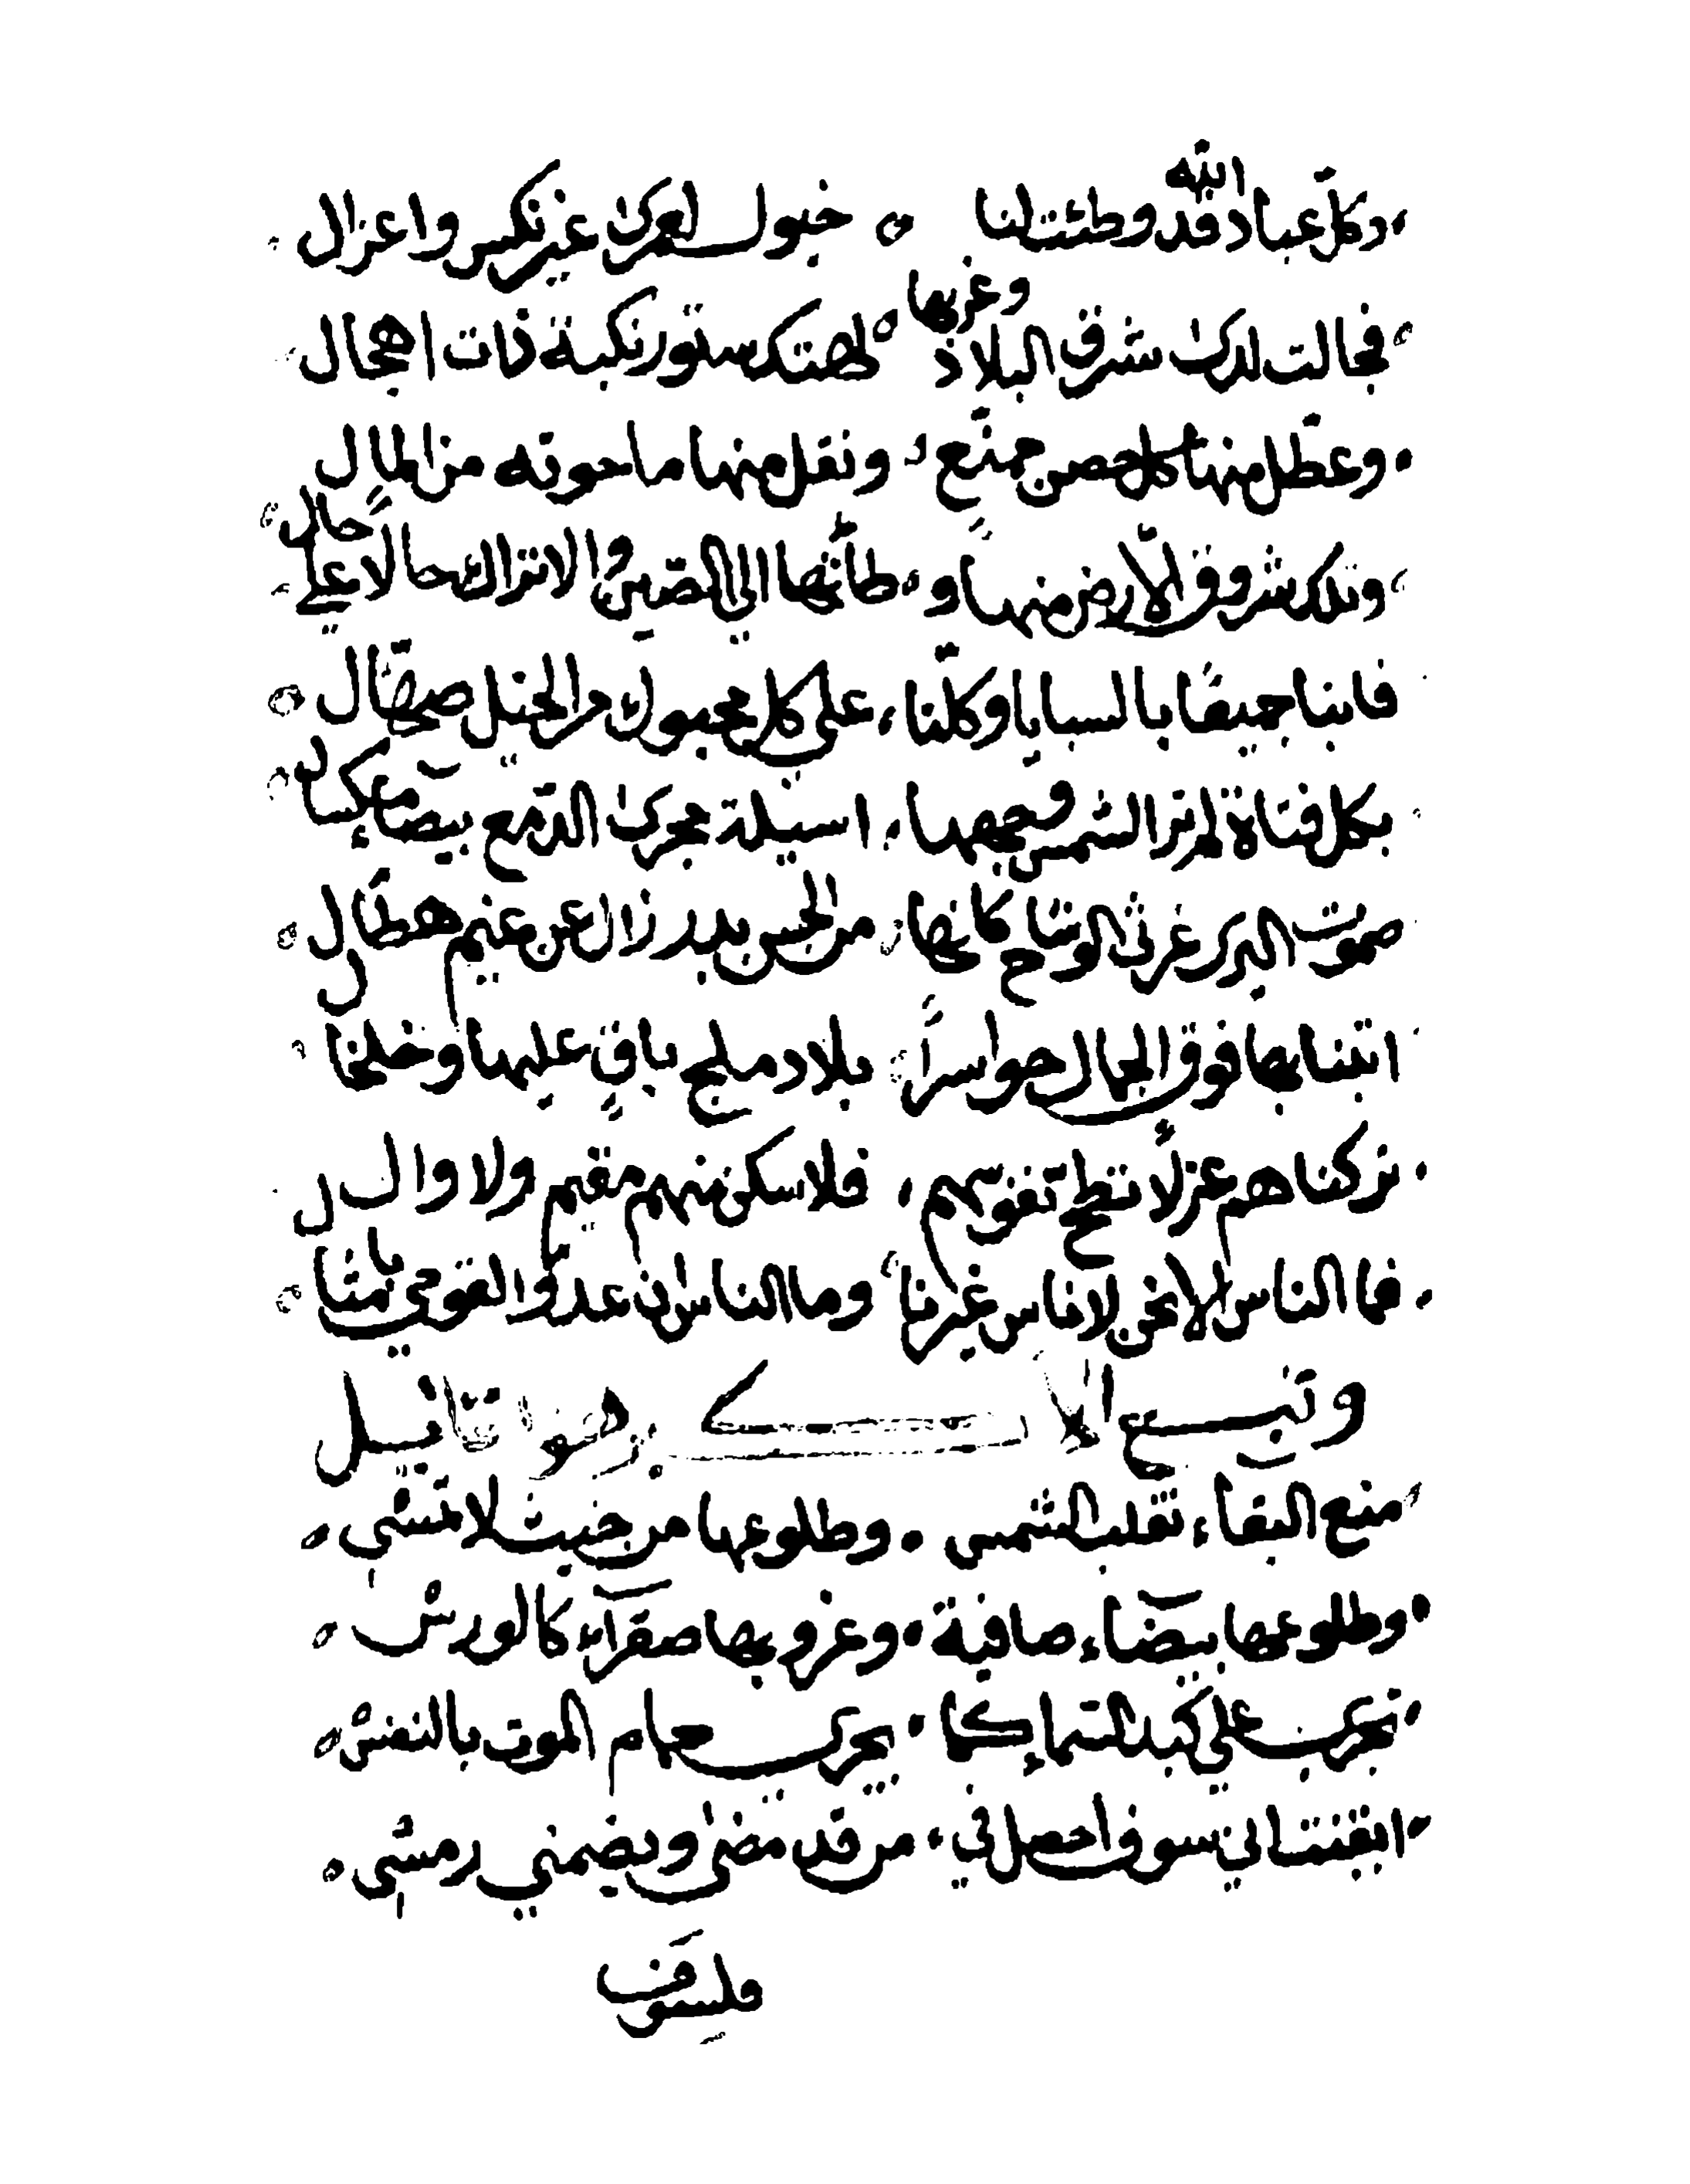 وكل عباد الله قد وطئت لنا ○ خيول لعمرى غير نكس واعزال
فجالت لدى شرق البلاد وغربها ○ لهتك ستور نكبة ذات اهجال
وعطل منها كل حصن ممنع ونقل منها ما حوته من المال
وتلك شروق الارض منها وطاتها الي الصين والاتراك حالا علي حال
فابنا جميعًا بالسبايا وكلنا، على كل محبوك من الخيل صهال
بكل فتاة لم تر الشمس وجهها، اسيلة مجرى الدمع بيضا مكسال
صموت البرى غرثى الوشاح كانها، من الحسن بدر زال عن غيم هطال
اتينا بها فوق الجمال حواسرًا بلا دملج باقٍ عليها وخلخال
تركنا هم عزلاً تطح نفوسهم، فلا سكن منهم مقيم ولا وال
فما الناس الا نحن لا ناس غيرنا وما الناس ان عدوا لقومي بامثال
وتبع الا وهو قايل
منع البقاء تقلب الشمس. وطلوعها من حيث لا تمشي
وطلوعها بيضاء صافية. وغروبها صفراء كالورس
تجري علي كبد السماء كما. يجري حمام الموت بالنفس
ايقنت اني سوف احصل في، من قد مضى ويضمني رمسي